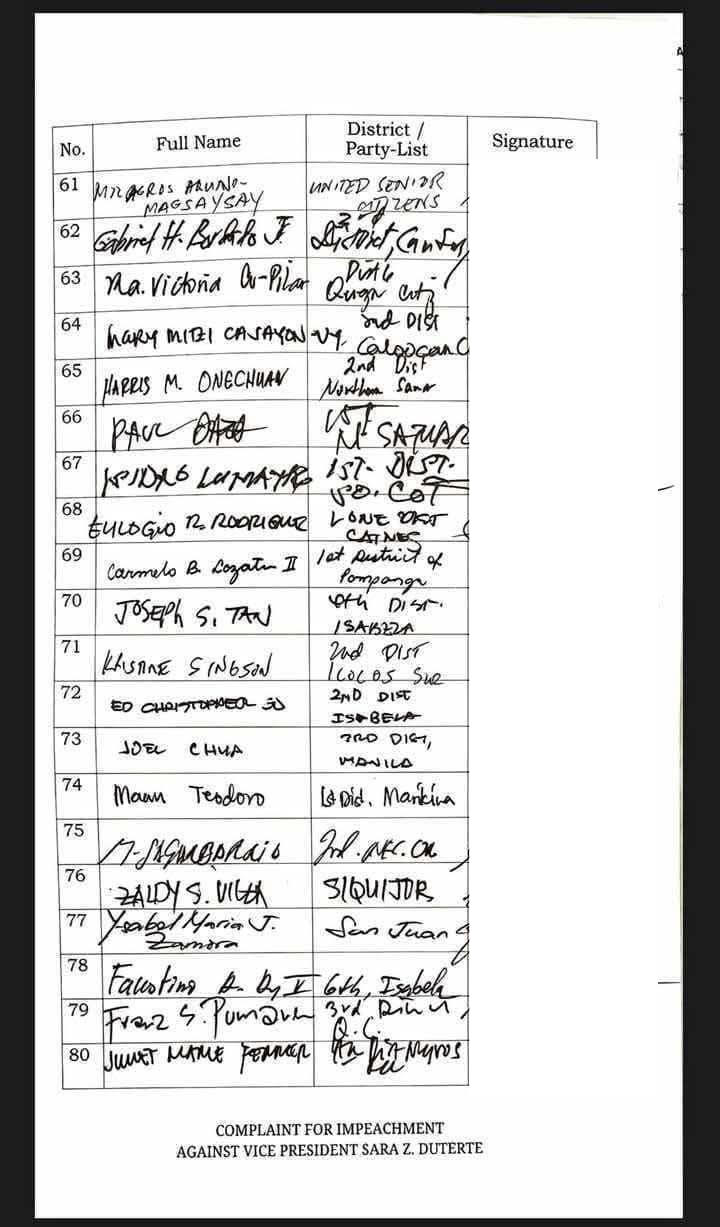 No. Full Name District / Party-List Signature
61 MILAGROS AQUINO-MAGSAYSAY UNITED SENIOR CITIZENS
62 Gabriel H. Bordado Jr. 3rd District, CamSur
63 Ma. Victoria Co-Pilar Dist 6 Quezon City
64 MARY MITZI CAJAYON-UY 2nd DIST Caloocan C
65 HARRIS M. ONGCHUAN 2nd Dist Northern Samar
66 PAUL DAZA 1ST N. SAMAR
67 ISIDRO LUMAYAG 1ST. DIST. SO. COT
68 EULOGIO R. RODRIGUEZ LONE DIST CATNES
69 Carmelo B. Lazatin II 1st District of Pampanga
70 JOSEPH S. TAN 4th DIST. ISABELA
71 KRISTINE SINGSON 2nd DIST ILOCOS SUR
72 ED CHRISTOPHER GO 2ND DIST ISABELA
73 JOEL CHUA 3RD DIST, MANILA
74 Maan Teodoro 1st Dist. Marikina
75 2nd
76 ZALDY S. VILLA SIQUIJOR
77 Ysabel Maria J. Zamora San Juan
78 Faustino A. Dy V 6th, Isabela
79 Franz S. Pumaren 3rd Q.C.
80 JULIET MARIE FERRER 4th Dist Negros
COMPLAINT FOR IMPEACHMENT
AGAINST VICE PRESIDENT SARA Z. DUTERTE